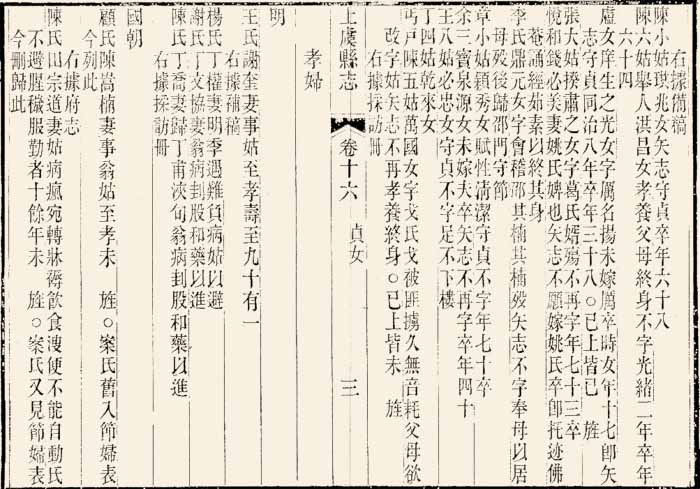 陳小姑琪兆女矢志守貞卒年六十八
右據備稿
陳六姑舉人洪昌女孝養父母終身不字光緒二年卒年
六十四
盧女庠生之光女字厲名揚未嫁厲卒時女年十七卽矢
志守貞同治八年卒年三十八○已上皆已　旌
張大姑揆肅之女字葛氏婿殤不再字年七十三卒
悅和錢必美妻姚氏婢也矢志不願嫁姚氏卒卽托迹佛
菴誦經茹素以終其身
李氏鼎元女字會稽邵其楠其楠歿矢志不字奉母以居
母歿後歸邵門守節
章小姑穎秀女賦性清潔守貞不字年七十卒
余三寶泉源女未嫁夫卒矢志不再字卒年四十
王八姑必忠女守貞不字足不下樓
丁四姑乾來女
丐戶陳五姑萬國女字戈氏戈被匪擄久無音耗父母欲
改字姑矢志不再孝養終身○已上皆未　旌
右據採訪冊
上虞縣志　卷十六　貞女　三
孝婦
明
王氏謝奎妻事姑至孝壽至九十有一
右據備稿
楊氏丁權妻明季遇難負病姑以避
謝氏丁文協妻翁病刲股和藥以進
陳氏丁喬妻歸丁甫浹旬翁病刲股和藥以進
右據採訪冊
國朝
顧氏陳嵩楠妻事翁姑至孝未　旌○案氏舊入節婦表
今列此
右據府志
陳氏田宗道妻姑病瘋宛轉牀蓐飲食溲便不能自動氏
不避腥穢服勤者十餘年未　旌○案氏又見節婦表
今刪歸此